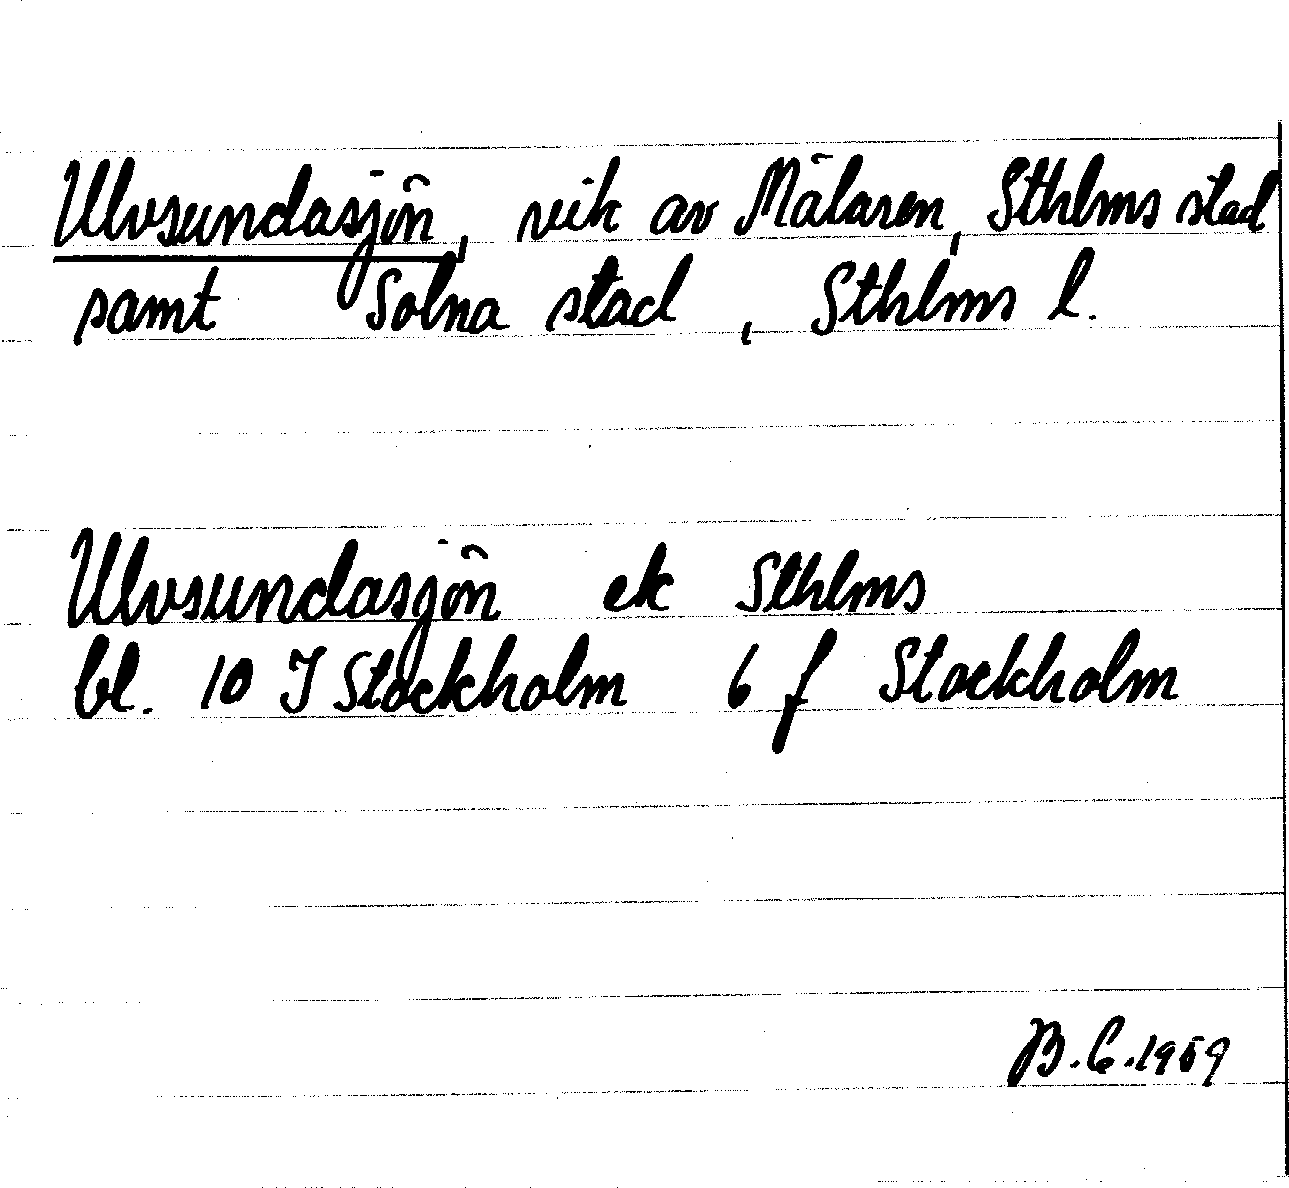 Ulvsundasjön, vik av Mälaren, Sthlms stad
samt Solna stad, Sthlms l.
Ulvsundasjön ek Sthlms
bl. 10 I Stockholm 6 f Stockholm
B.C.1959